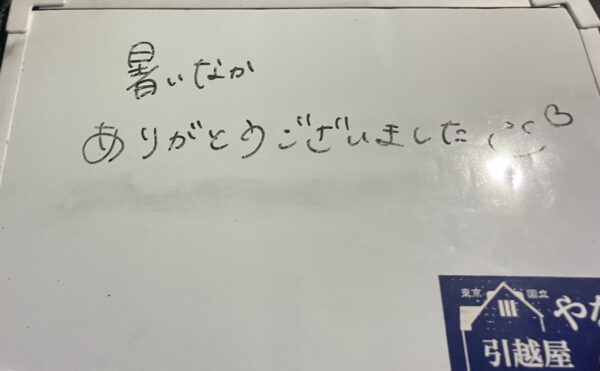 暑いなか
ありがとうございました
東京 国立
やな
引越屋